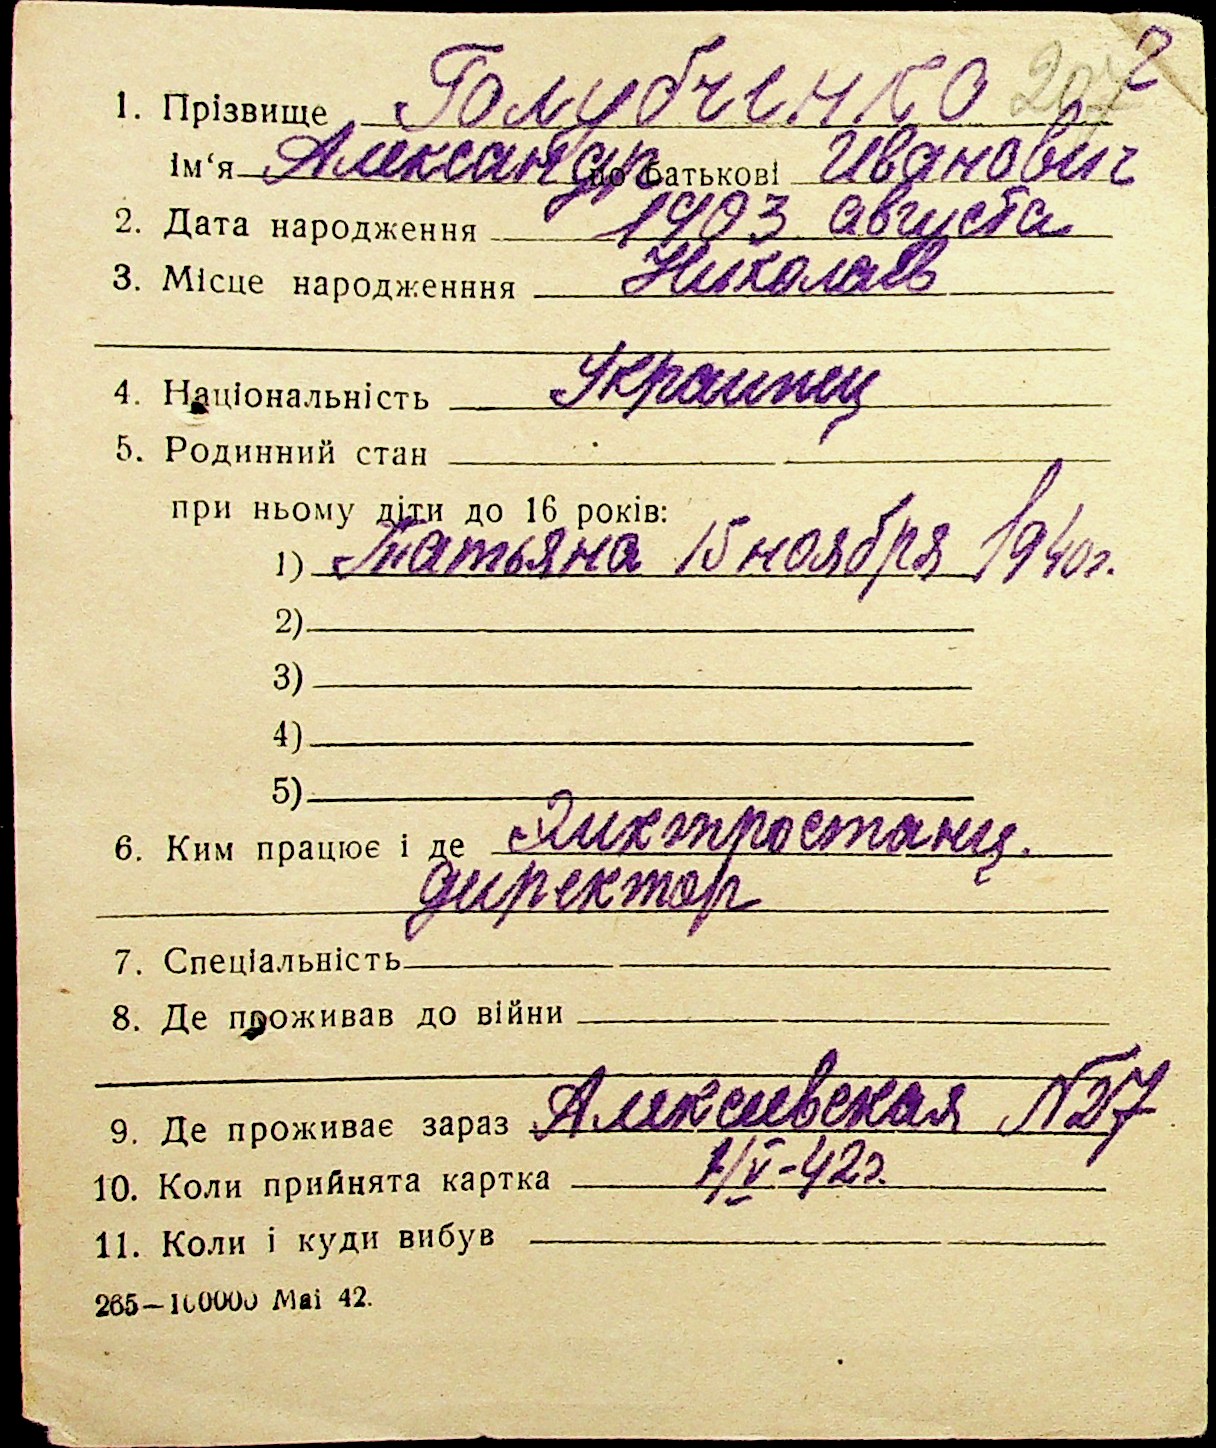 2
207
1. Прізвище Голубченко
Ім‘я Александр по батькові Иванович
2. Дата народження 1903 августа
3. Місце народженння Николаев
4. Національність Украинец
5. Родинний стан
при ньому діти до 16 років:
1) Татьяна 15 ноября 1940г.
2)
3)
4)
5)
6. Ким працює і де Электростанц.
директор
7. Спеціальність
8. Де проживав до війни
9. Де проживає зараз Алексеевская №27
10. Коли прийнята картка 1/V-42г.
11. Коли і куди вибув
265—100000 Mai 42.